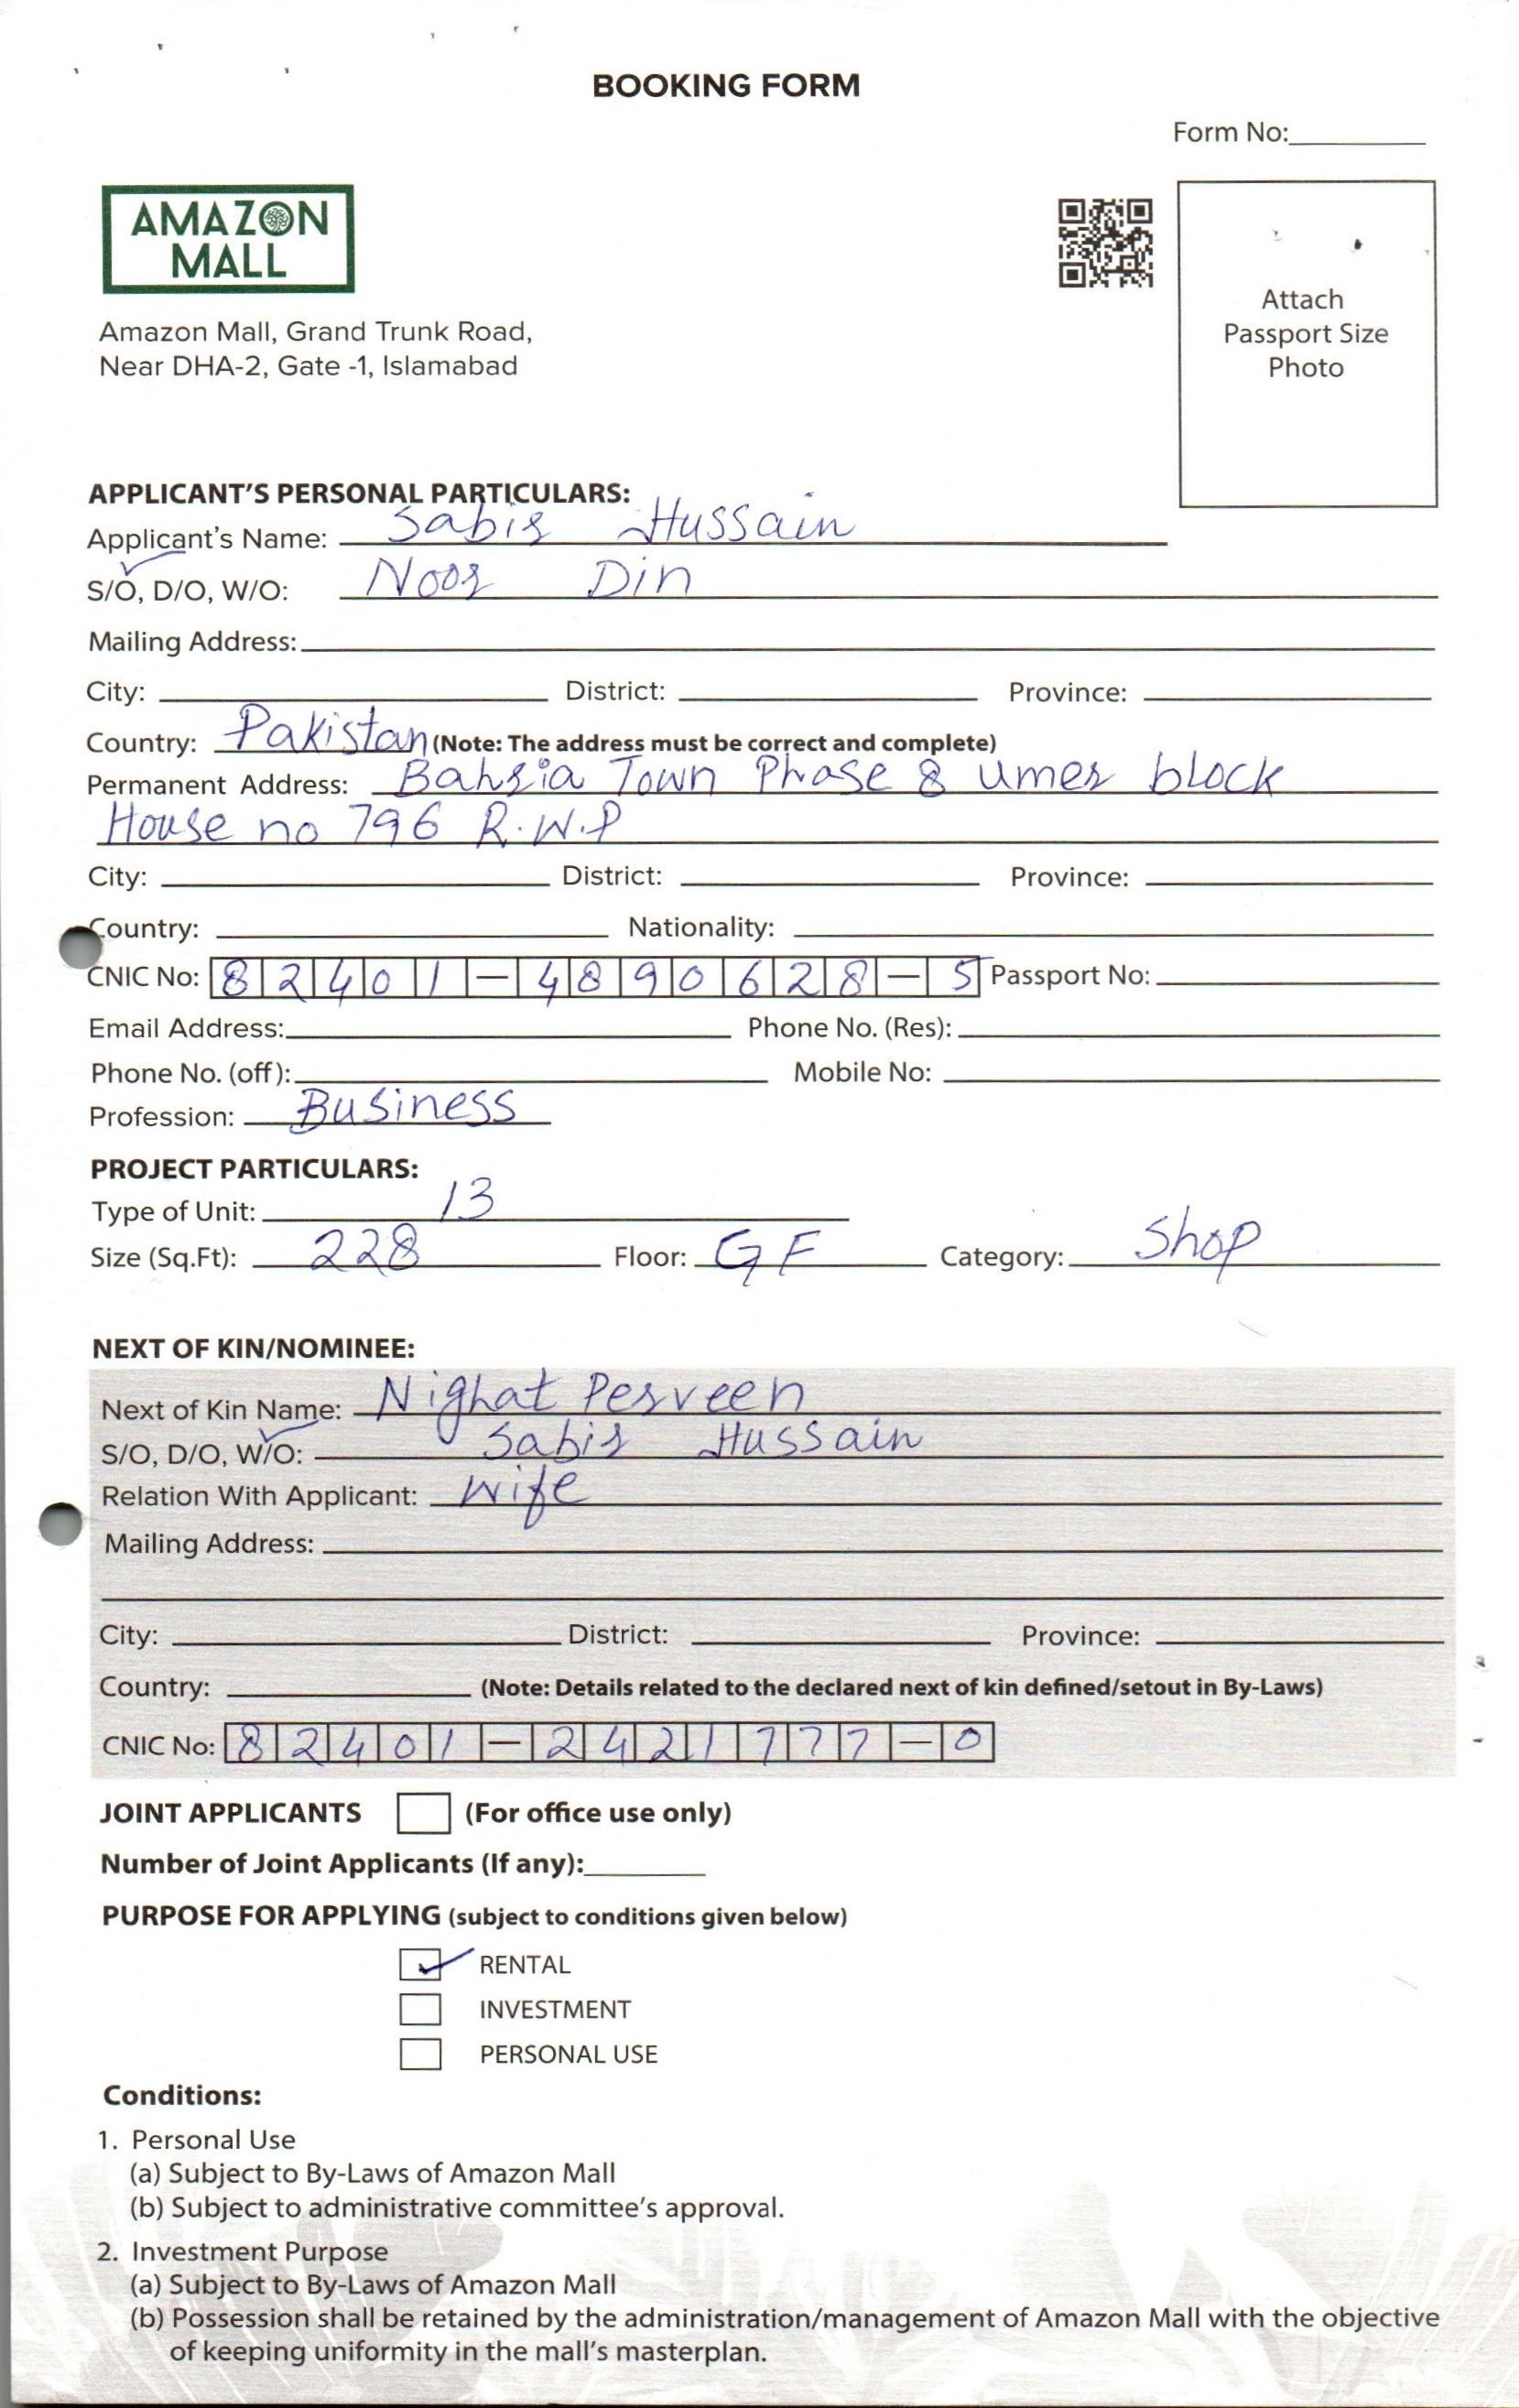 BOOKING FORM
Form No:
AMAZON
MALL
Attach
Passport Size
Photo
Amazon Mall, Grand Trunk Road,
Near DHA-2, Gate -1, Islamabad
APPLICANT'S PERSONAL PARTICULARS:
Applicant's Name: Sabir Hussain
S/O, D/O, W/O: Noor Din
Mailing Address:
City: District: Province:
Country: Pakistan (Note: The address must be correct and complete)
Permanent Address: Bahria Town Phase 8 umer block
House no 796 R.W.P
City: District: Province:
Country: Nationality:
CNIC No: 82401-4890628-5 Passport No:
Email Address: Phone No. (Res):
Phone No. (off): Mobile No:
Profession: Business
PROJECT PARTICULARS:
Type of Unit: 13
Size (Sq.Ft): 228 Floor: GF Category: Shop
NEXT OF KIN/NOMINEE:
Next of Kin Name: Nighat Perveen
S/O, D/O, W/O: Sabir Hussain
Relation With Applicant: Wife
Mailing Address:
City: District: Province:
Country: (Note: Details related to the declared next of kin defined/setout in By-Laws)
CNIC No: 82401-2421777-0
JOINT APPLICANTS (For office use only)
Number of Joint Applicants (If any):
PURPOSE FOR APPLYING (subject to conditions given below)
RENTAL
INVESTMENT
PERSONAL USE
Conditions:
1. Personal Use
(a) Subject to By-Laws of Amazon Mall
(b) Subject to administrative committee's approval.
2. Investment Purpose
(a) Subject to By-Laws of Amazon Mall
(b) Possession shall be retained by the administration/management of Amazon Mall with the objective
of keeping uniformity in the mall's masterplan.